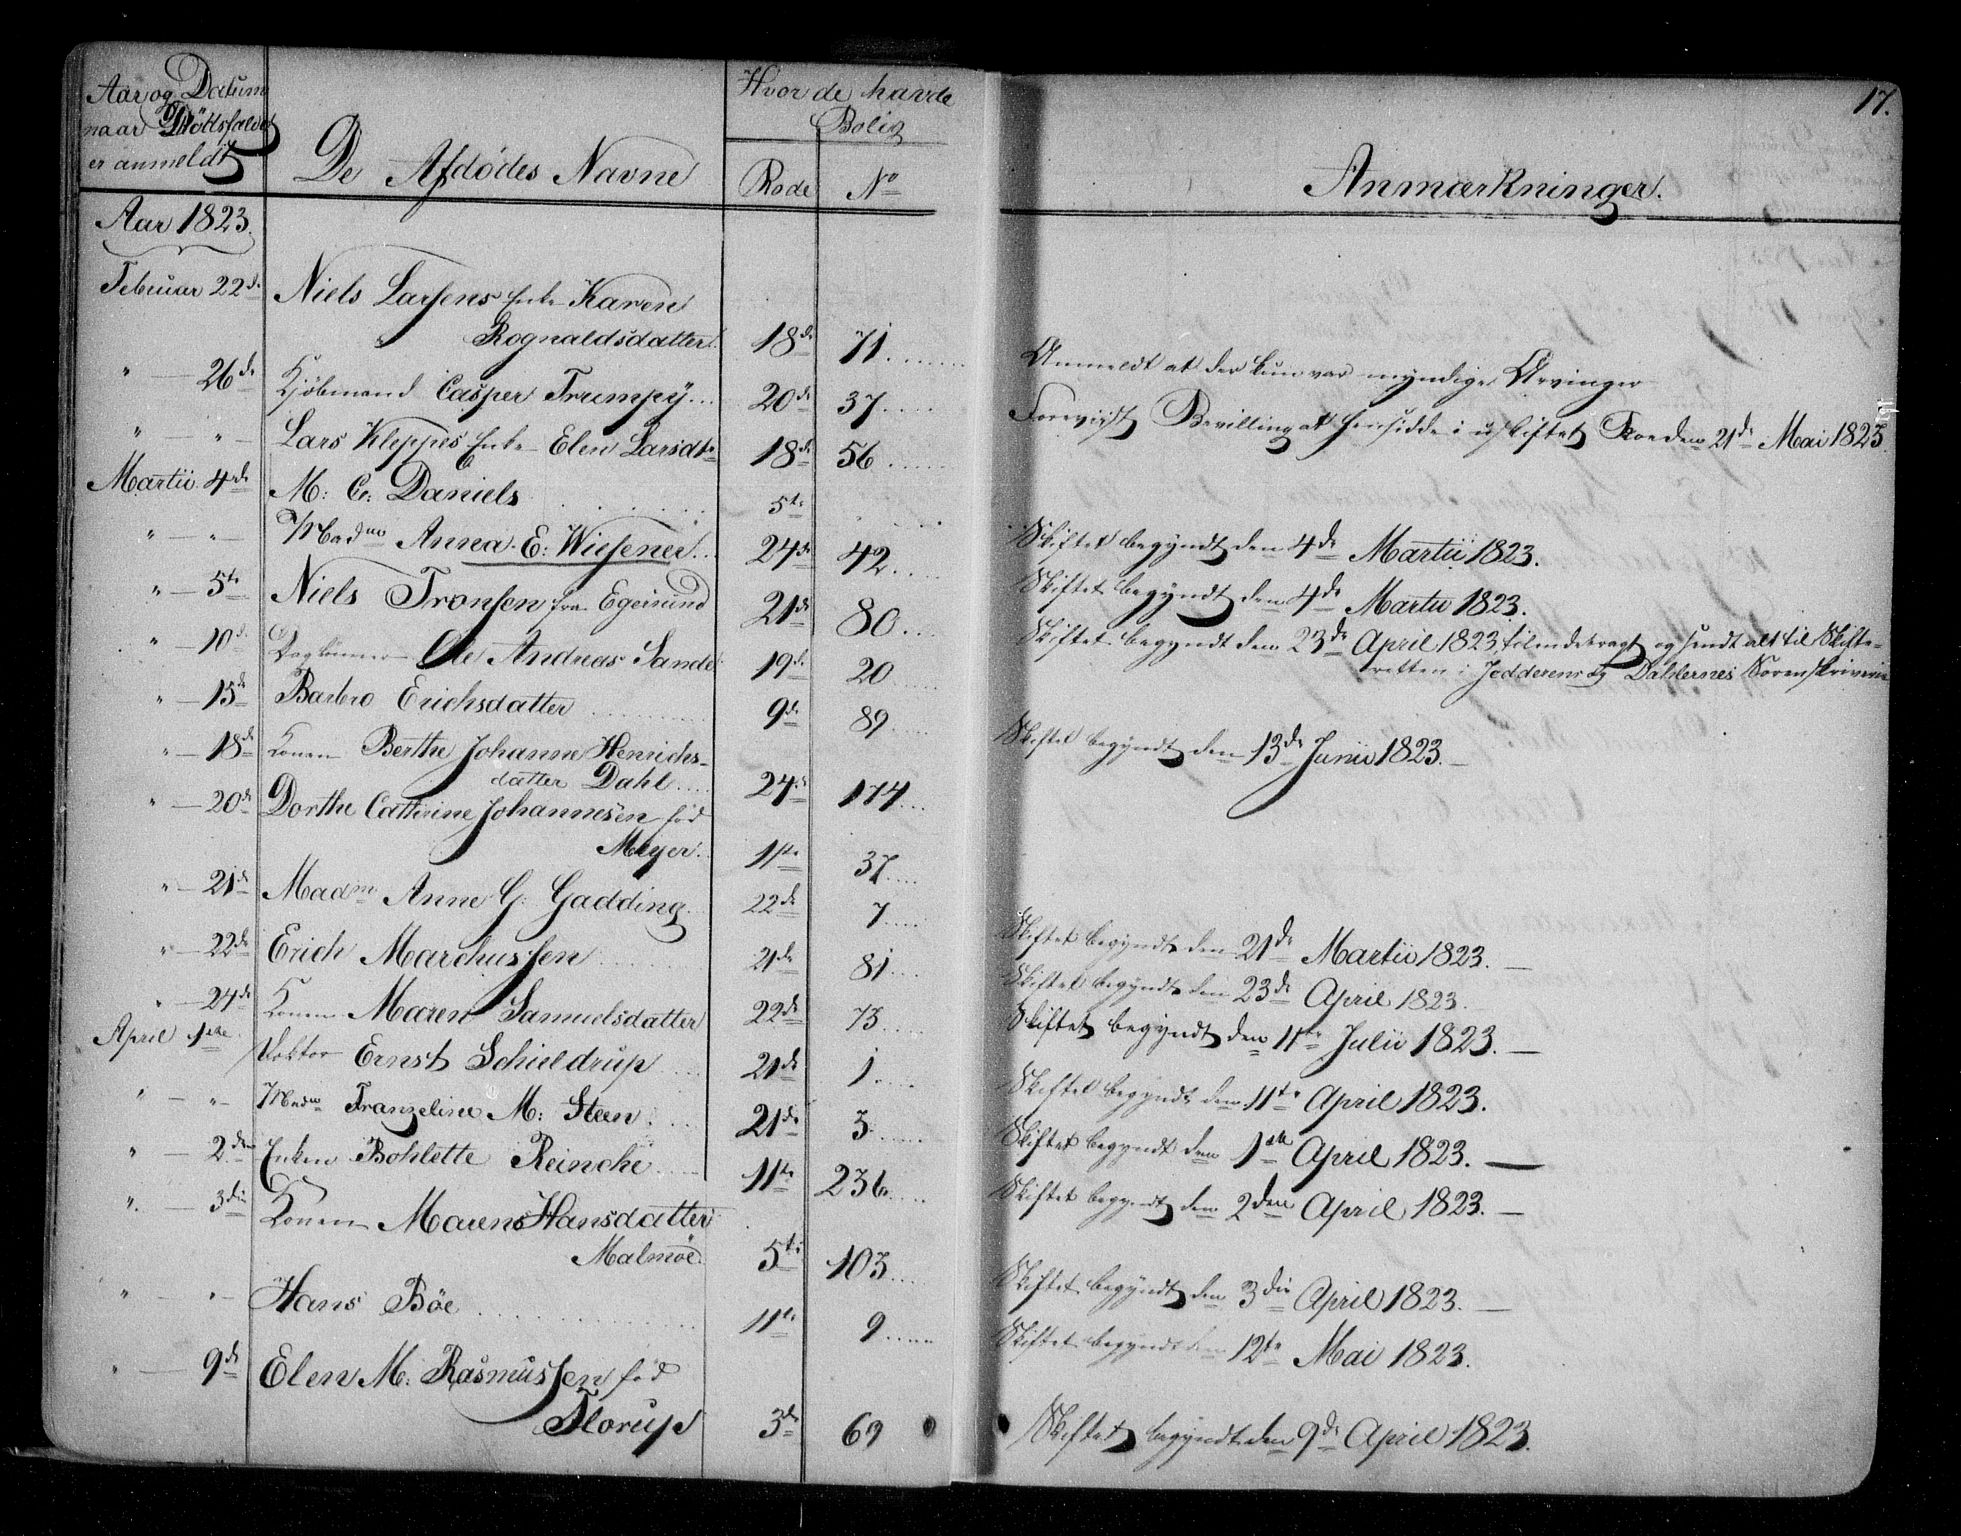 Aar og Datum
naar Dödsfaldet
er anmeldt
De Afdödes Navne
Hvor de havde
Bolig
Rode
No
17.
Anmærkninger.
Aar 1823.
Februar 22de Niels Larsens Enke Karen
Rognaldsdatter. 18de 71
" — 26de Kjöbmand Casper Trumpÿ 20de 37 Anmeldt at der kun var myndige Arvinger
" — " — Lars Kleppes Enke Elen Larsdtr 18de 56 Foreviist Bevilling at hensidde i uskiftet Boe den 21de Mai 1823
Martii 4de M: C: Daniels 5te
" — " — Madme Anna E: Wiesener 24de 42 Skiftet begyndt den 4de Martii 1823.
" — 5te Niels Tronsen fra Egersund 21de 80 Skiftet begyndt den 4de Martii 1823.
" — 10de Ole Andreas Sande 19de 20 Skiftet begyndt den 23de April 1823, tilendebragt og sendt alt til Skifte-
retten i Jedderens og Dahlernes Sorenskriverie
" — 15de Barbro Erichsdatter 9de 89
" — 18de Konen Berthe Johanne Henrichs-
datter Dahl 24de 174 Skiftet begyndt den 13de Junii 1823. —
" — 20de Dorthe Cathrine Johannesen fød
Meyer. 11te 37
" — 21de Madme Anne G: Gadding 22de 7
" — 22de Erich Marchussen 21de 81 Skiftet begyndt den 21de Martii 1823. —
" — 24de Konen Maren Samuelsdatter 22de 73 Skiftet begyndt den 23de April 1823.
April 1ste Doktor Ernst Schieldrup 21de 1 Skiftet begyndt den 11te Julii 1823. —
" — " — Madme Franzeline M: Steen 21de 3 Skiftet begyndt den 11te April 1823.
" — 2de Enken Bohlette Reinche 11te 236 Skiftet begyndt den 1ste April 1823. —
" — 3die Konen Maren Hansdatter
Malmöe 5te 103 Skiftet begyndt den 2den April 1823. —
" — " — Hans Böe 11te 9 Skiftet begyndt den 3die April 1823. —
Skiftet begyndt den 12te Mai 1823.
" — 9de Elen M: Rasmussen fød
Florup 3de 69 Skiftet begyndt den 9de April 1823.